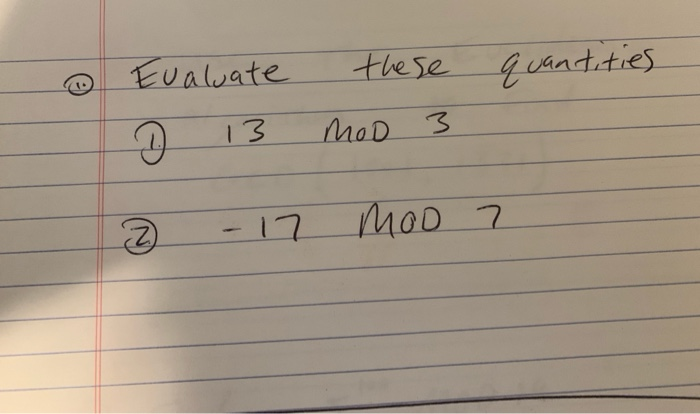 1. Evaluate these quantities
1 13 MOD 3
2 -17 MOD 7